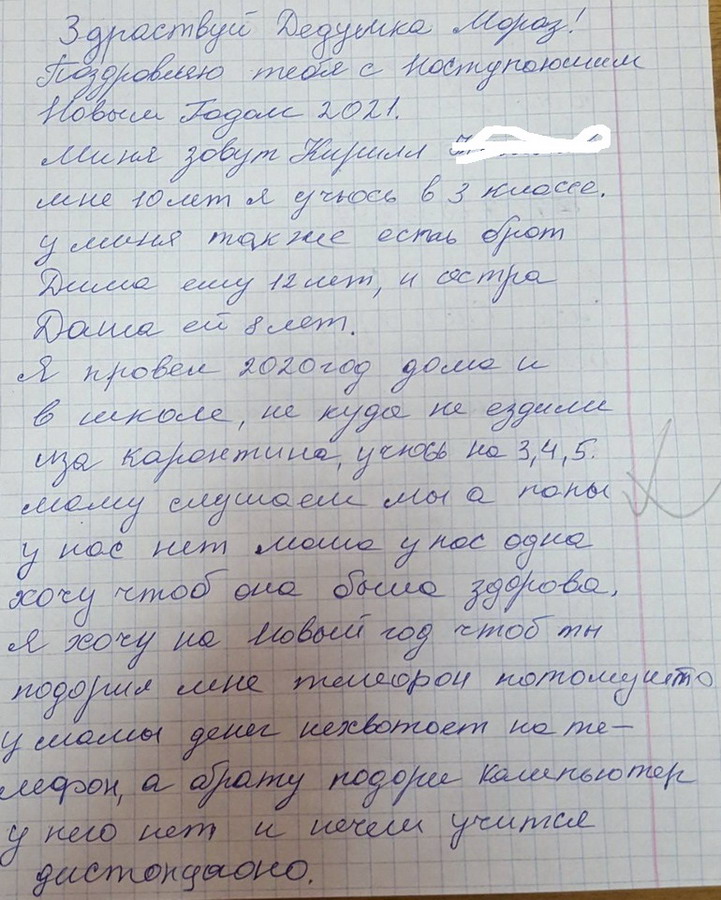 Здраствуй Дедушка Мороз!
Поздровляю тебя с Наступоюшим
Новым Годом 2021.
Миня зовут Кирилл
мне 10 лет я учюсь в 3 классе.
у миня также есть брат
Дима ему 12 лет, и сестра
Даша ей 8 лет.
Я провел 2020 год дома и
в школе, не куда не ездили
иза карантина, учюсь на 3,4,5.
маму слушаем мы а папы
у нас нет мама у нас одна
хочу чтоб она была здорова.
Я хочу на Новый год чтоб ты
подорил мне телефон потомушто
у мамы денег нехвотоет на те-
лефон, а брату подори компьютер
у него нет и нечем учится